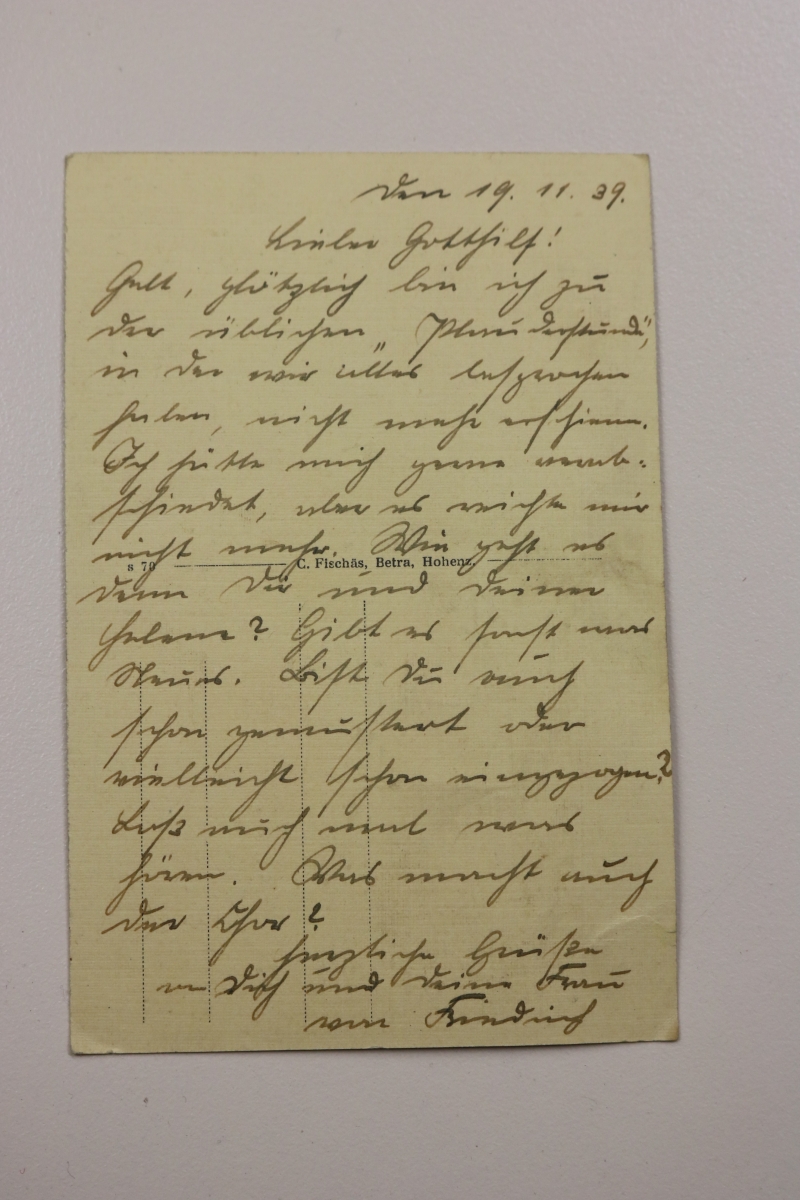 den 19. 11. 39.
Lieber Gotthilf!
Gelt, plötzlich bin ich zu
der üblichen „Plauderstunde",
in der wir alles besprochen
haben, nicht mehr erschienen.
Ich hätte mich gerne verab-
schiedet, aber es reichte mir
nicht mehr. Wie geht es
s 70 C. Fischäs, Betra, Hohenz.
denn Dir und Deiner
Helene? Gibt es sonst was
Neues. Bist Du auch
schon gemustert oder
vielleicht schon eingezogen?
Laß auch mal was
hören. Was macht auch
der Chor?
Herzliche Grüße
an Dich und Deine Frau
von Friedrich